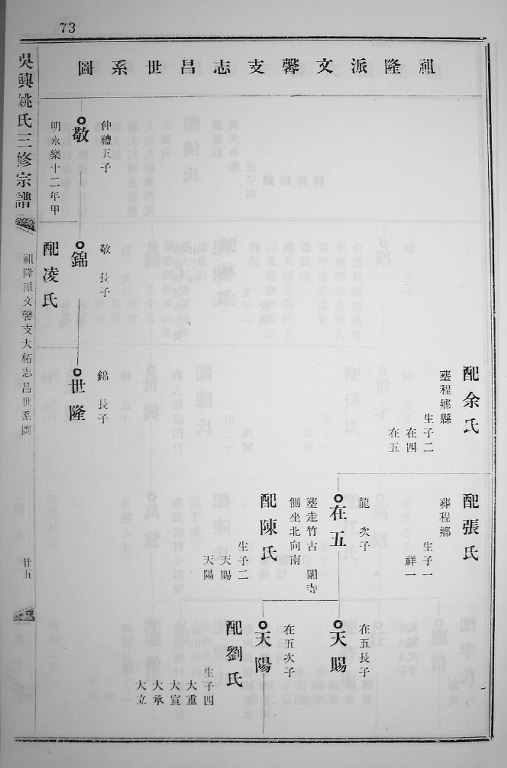 73
祖隆派文馨支志昌世系圖
配余氏
塟程鄉縣
生子二
在四
在五
配張氏
葬程鄉
生子一
祥一
仲禮五子
敬
明永樂十二年甲
敬 長子
錦
配凌氏
錦 長子
世隆
龍 次子
在五
塟走竹古 圍寺
側坐北向南
配陳氏
生子二
天賜
天陽
在五長子
天賜
在五次子
天陽
配劉氏
生子四
大重
大宣
大承
大立
吳興姚氏三修宗譜
祖隆派文馨支大柘志昌世系圖
廿五